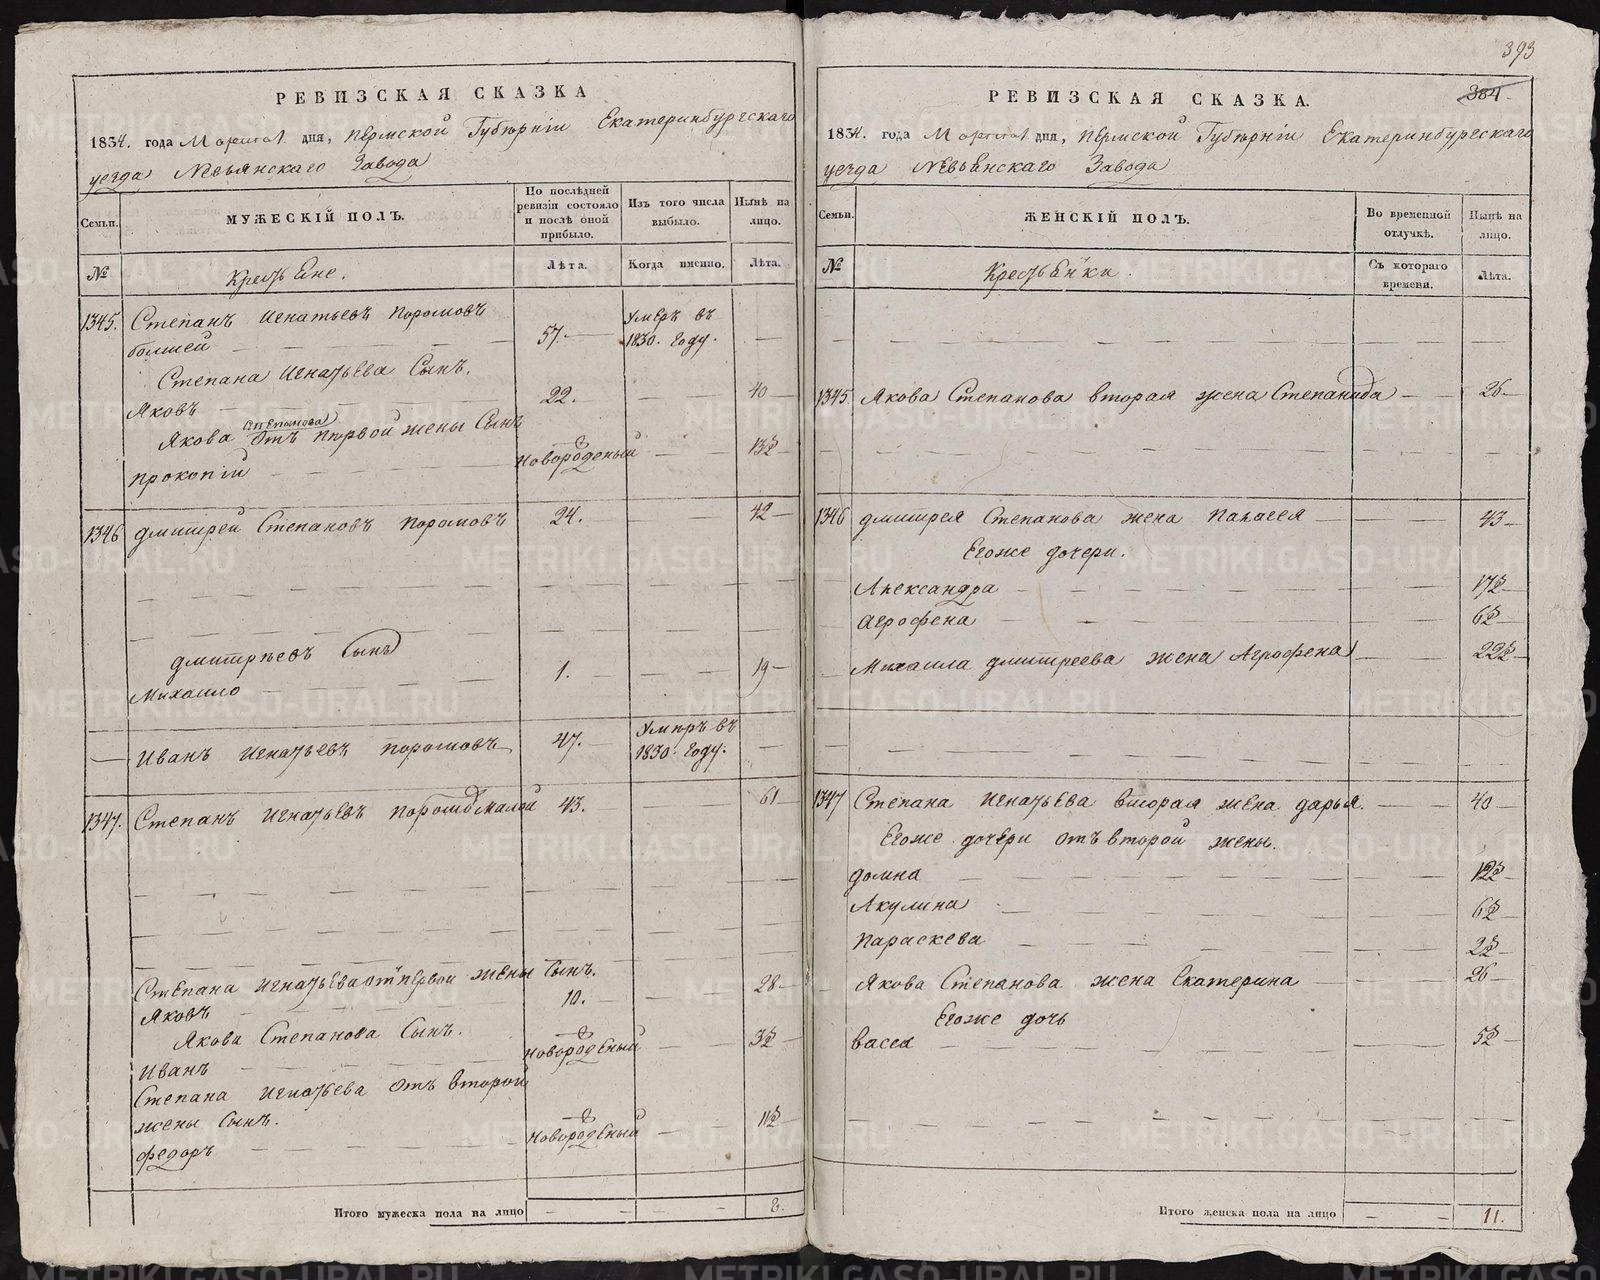 РЕВИЗСКАЯ СКАЗКА
1834. года Марта 1 дня, Пермской Губернiи Екатеринбургскаго
уезда Невьянскаго Завода
Семьи.
МУЖЕСКIЙ ПОЛЪ.
По послѣдней ревизiи состояло и послѣ оной прибыло.
Изъ того числа выбыло.
Нынѣ на лицо.
№
Крестьяне.
Лѣта.
Когда именно.
Лѣта.
1345. Степанъ Игнатьевъ Порошовъ
болшей 57. Умеръ въ 1830. Году.
Степана Игнатьева Сынъ.
Яковъ 22. 40
Якова Степанова отъ первой жены Сынъ
Прокопiй новорожденый 13½
1346 Дмитрей Степановъ Порошовъ 24. 42
Дмитрѣевъ Сынъ
Михаило 1. 19
Иванъ Игнатьевъ Порошовъ 47. Умѣръ въ 1830. Году.
1347. Степанъ Игнатьевъ Порошовъ Малой 43. 61
Степана Игнатьева отъ первой жены Сынъ.
Яковъ 10. 28
Якова Степанова Сынъ.
Иванъ новорожденый 3½
Степана Игнатьева отъ второй
жены Сынъ.
Федоръ новорожденый 11½
Итого мужеска пола на лицо 8.
393
384
РЕВИЗСКАЯ СКАЗКА.
1834. года Марта 1 дня, Пермской Губернiи Екатеринбургскаго
уезда Невьянскаго Завода
Семьи.
ЖЕНСКIЙ ПОЛЪ.
Во временной отлучкѣ.
Нынѣ на лицо.
№
Крестьянки.
Съ котораго времени.
Лѣта.
1345 Якова Степанова вторая жена Степанида 26
1346 Дмитрея Степанова жена Палагея 43
Егоже дочери.
Александра 17½
Агрофена 6½
Михаила Дмитреева жена Агрофена 22½
1347 Степана Игнатьева вторая жена Дарья. 40
Егоже дочери отъ второй жены.
Домна 12½
Акулина 6½
Параскева 2½
Якова Степанова жена Екатерина 26
Егоже дочь
Васса 5½
Итого женска пола на лицо 11.
METRIKI.GASO-URAL.RU